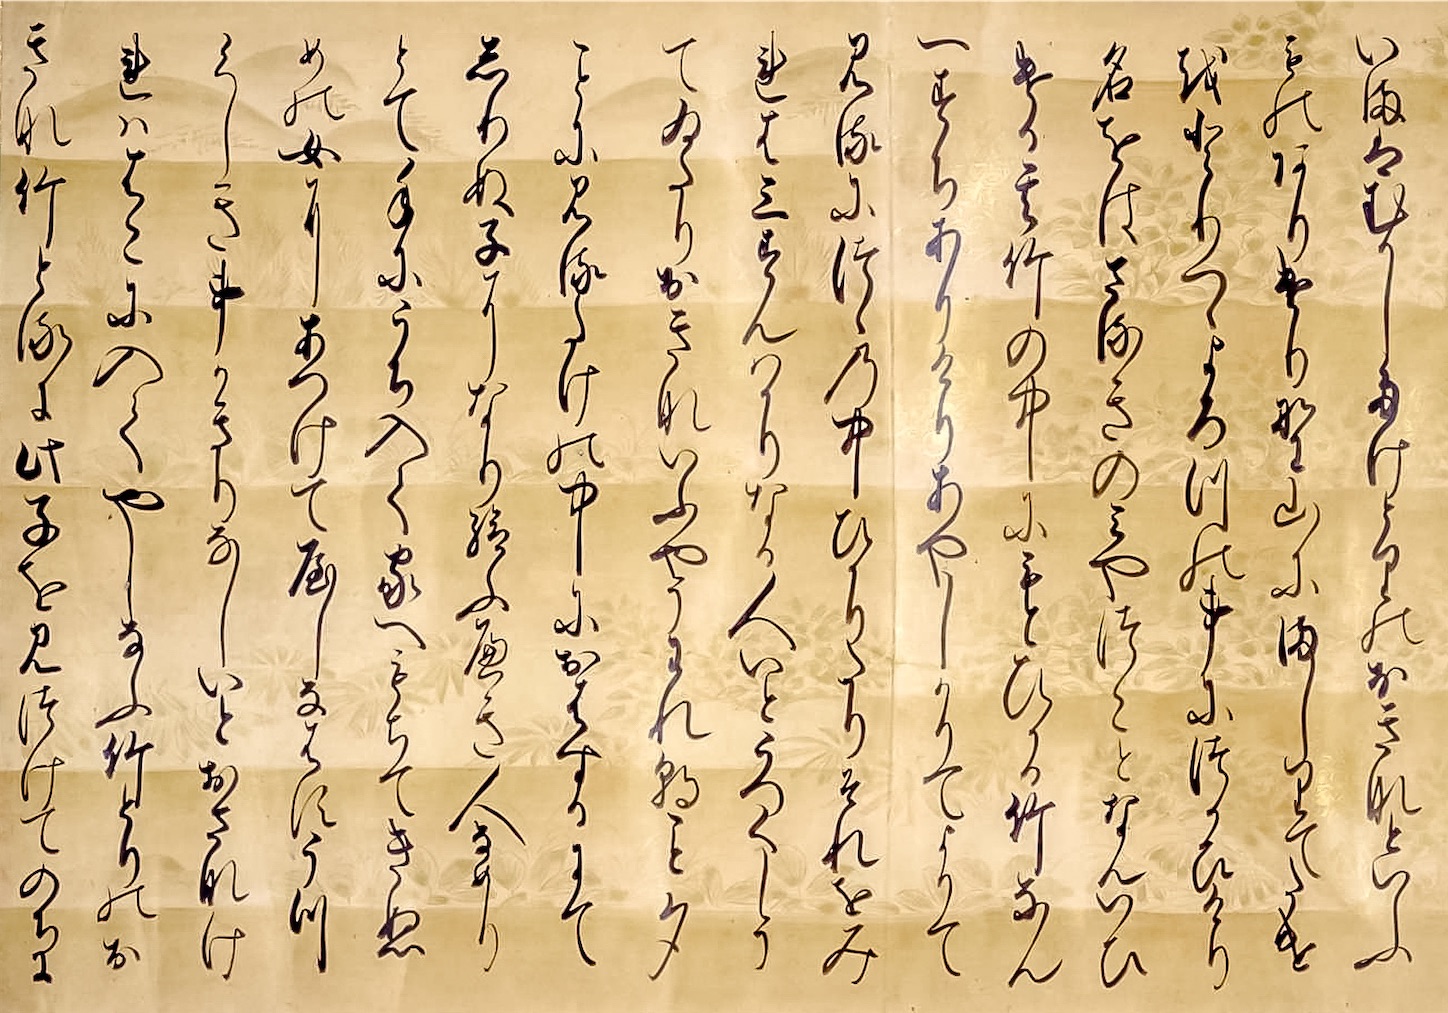 いまはむかしたけとりのおきなといふ
ものありけり野山にましりてたけ
をとりつゝよろつの事につかひけり
名をはさるきのみやつことなんいひ
ける其竹の中にもとひかる竹なん
一すちありけりあやしかりてよりて
見るにつゝの中ひかりたりそれをみ
れは三すんはかりなる人いとうつくしう
てゐたりおきないふやうわれ朝こと夕
ことに見るたけの中におはするにて
しりぬ子になり給ふへき人なめり
とて手にうち入て家へもちてきぬ
めの女にあつけてやしなはすうつ
くしき事かきりなしいとおさなけ
れははこに入てやしなふ竹とりのお
きな竹とるに此子を見つけてのちに